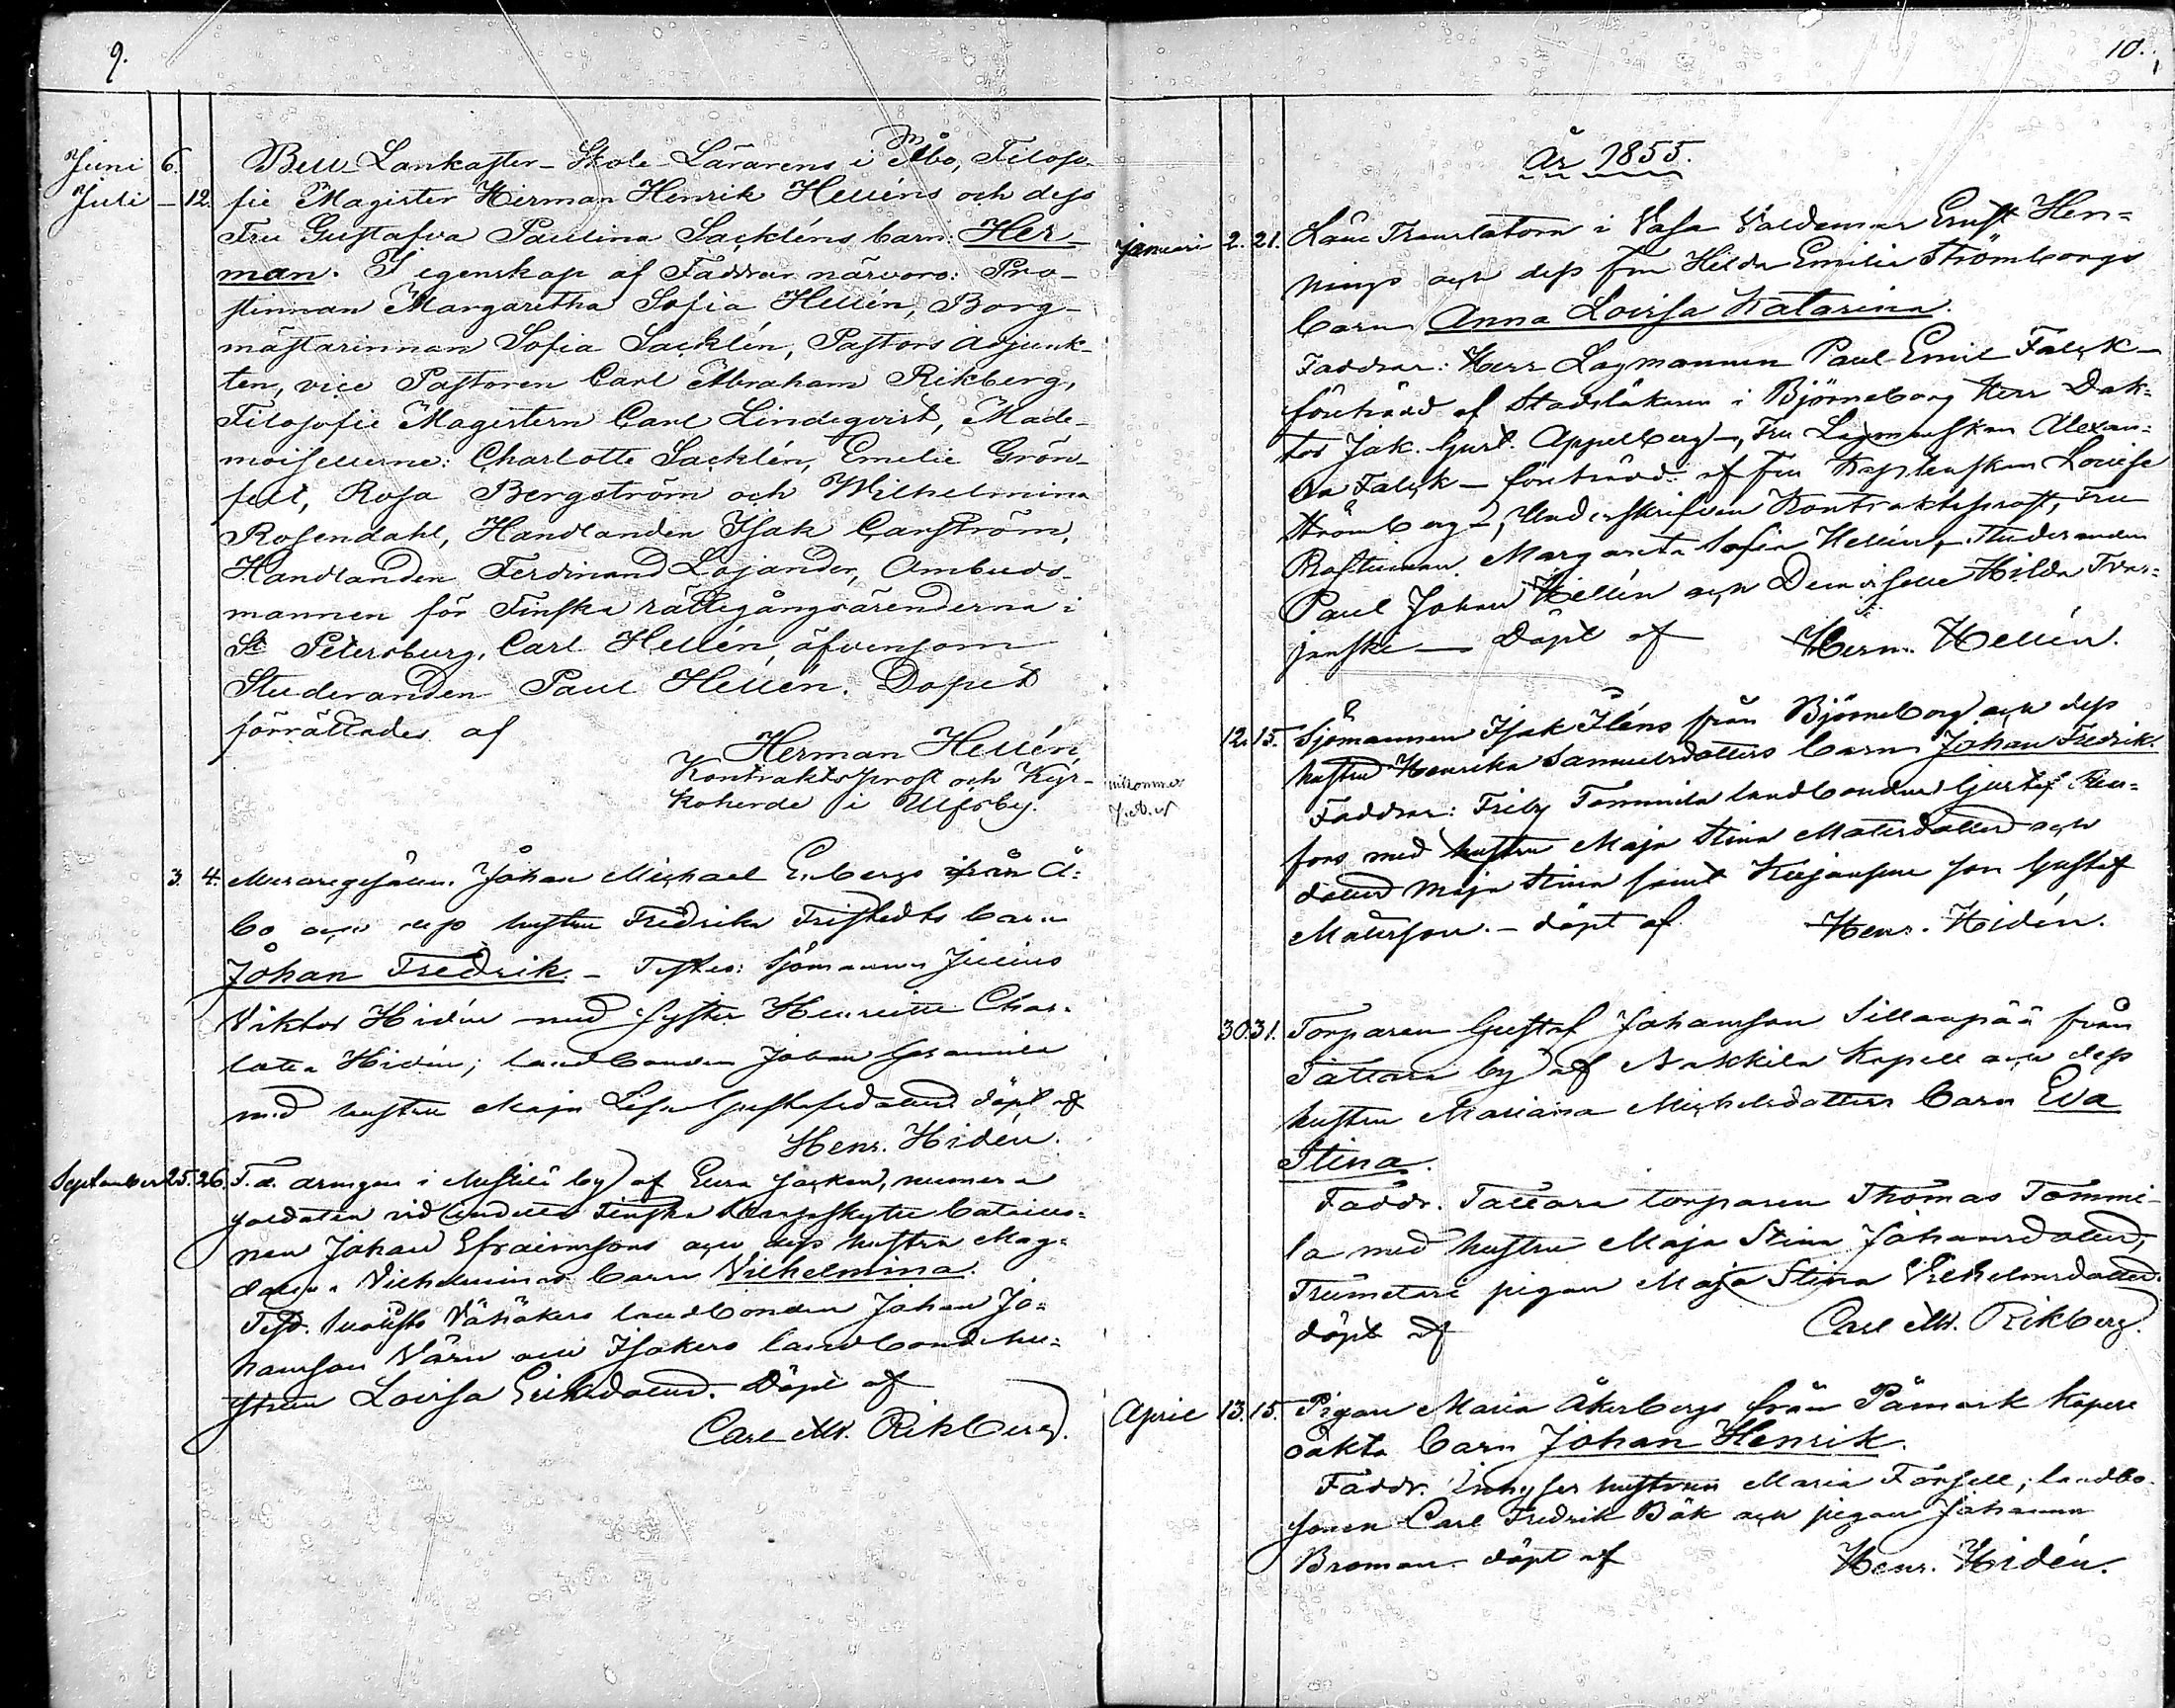 9.
Juni 6.
Juli – 12.
Bell-Lankaster-Skole-Lärarens i Åbo, Filoso-
fie Magister Herman Henrik Helléns och dess
Fru Gustafva Paulina Sackléns barn: Her-
man. I egenskap af Faddrar närvoro: Pro-
stinnan Margaretha Sofia Hellén, Borg-
mästarinnan Sofia Sacklén, Pastors Adjunk-
ten, vice Pastoren Carl Abraham Rikberg,
Filosofie Magistern Carl Lindeqvist, Made-
moisellerne: Charlotte Sacklén, Emelie Grön-
felt, Rosa Bergström och Wilhelmina
Rosendahl, Handlanden Isak Carström,
Handlanden Ferdinand Lojander, Ombuds-
mannen för Finska rättegångsärenderna i
St Petersburg, Carl Hellén, äfvensom
Studeranden Paul Hellén. Dopet
förrättades af
Herman Hellén,
Kontraktsprost och Kyr-
koherde i Ulfsby.
3. 4. Muraregesällen Johan Michael Enbergs från Å-
bo och dess hustru Fredrika Fristedts barn
Johan Fredrik. – Testes: Sjömannen Julius
Viktor Hidén med syster Henriette Char-
lotta Hidén; landbonden Johan
med hustru Maja Lisa Gustafsdotter döpt af
Henr. Hidén.
September 25. 26. F.d. drängen i by af Eura socken, numera
soldaten vid Finska Skarpskytte Bataillo-
nen Johan Efraimssons och dess hustru Mag-
dalena Vilhelminas barn Vilhelmina.
Test. landbonden Johan Jo-
hansson Värn och Isakers landbondehu-
strun Lovisa Eriksdotter. Döpt af
Carl Ab. Rikberg.
10.
År 1855.
Januari 2. 21. Translatorn i Vasa Valdemar Ernst Hen-
nings och dess fru Hilda Emilia Strömborgs
barn Anna Lovisa Katarina.
Faddrar: Herr Lagmannen Paul Emil Falck –
företrädd af Stadsläkaren i Björneborg Herr Dok-
tor Jak. Gust. Appelberg –, Fru Lagmanskan Alexan-
dra Falck – företrädd af Fru Kaptenskan Louise
Strömborg –, Underskrifven Kontraktsprost, Fru
Prostinnan Margareta Sofia Hellén, Studeranden
Paul Johan Hellén och Demoiselle Hilda Tvar-
janski – Döpt af Herm. Hellén.
12. 15. Sjömannen Isak Iléns från Björneborg och dess
hustru Henrika Samuelsdotters barn Johan Fredrik.
Faddrar: Friby Tommila landbonden Gustaf Ren-
fors med hustru Maja Stina Matsdotter och
dotter Maja Stina samt son Gustaf
Matsson. – döpt af Henr. Hidén.
30. 31. Torparen Gustaf Johansson Sillanpää från
Tattara by af Nakkila Kapell och dess
hustru Mariana Michelsdotters barn Eva
Stina.
Faddr. Tattara torparen Thomas Tommi-
la med hustru Maja Stina Johansdotter,
Trumetari pigan Maja Stina Vilhelmsdotter.
döpt af Carl Ab. Rikberg.
April 13. 15. Pigan Maria Åkerbergs från Påmark Kapell
oäkta barn Johan Henrik.
Faddr. Inhyses hustrun Maria Forsell, landbo-
sonen Carl Fredrik Bäk och pigan Johanna
Broman. döpt af Henr. Hidén.